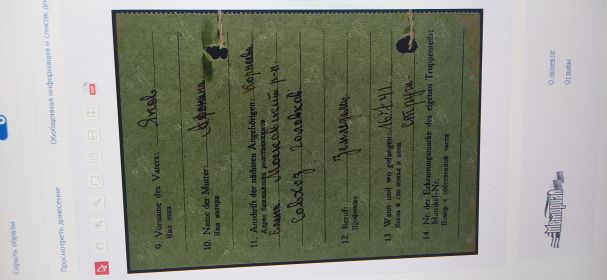 Скрыть образы
Просмотреть донесение
Обобщенная информация и список до
9. Vorname des Vaters: Яков
Имя отца
10. Name der Mutter:
Имя матери
11. Anschrift der nächsten Angehörigen: Корнева
Адрес ближайших родственников
Елена Московский р-н
Совхоз
12. Beruf:
Профессия
13 Wann und wo gefangen: 16.7.41.
Когда и где попал в плен
Струги
14. Nr. der Erkennungsmarke des eigenen Truppenteils:
Matrikel-Nr.
Номер в собственной части
О проекте
Отзывы